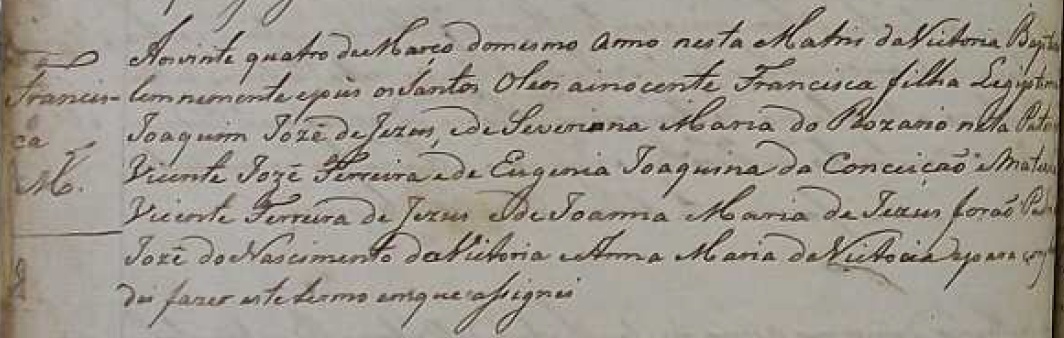 Francis-
ca
M.
Aos vinte quatro de Março do mesmo anno nesta Matris da Victoria Bapti
lemnemente epùs os Santos Oleos a inocente Francisca filha Legiptima
Joaquim Jozê de Jezus, e de Severiana Maria do Rozario neta Pater
Vicente Jozê Ferreira e de Eugenia Joaquina da Conceição e Mater
Vicente Ferreira de Jezus e de Joanna Maria de Jezus forão Padr
Jozê do Nascimento da Victoria e Anna Maria da Victoria e para
dei fazer este termo em que assignei